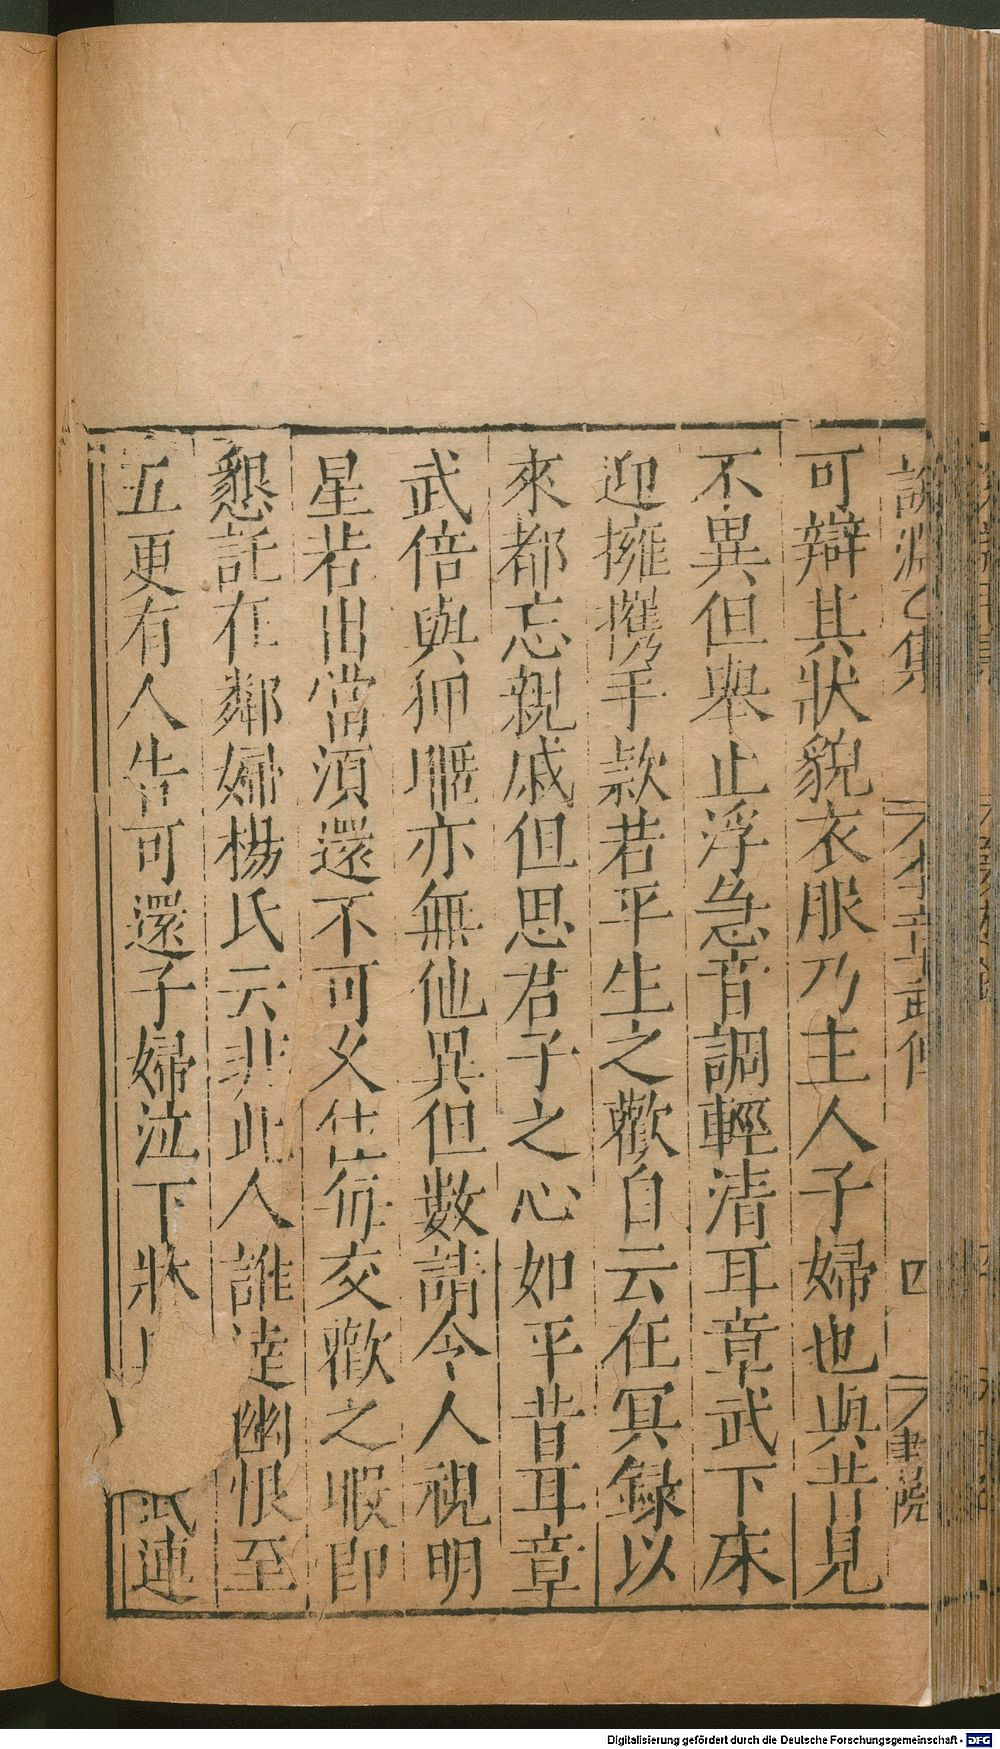 說淵乙集
李章武傳
四
書院
可辯其狀貌衣服乃主人子婦也與昔見
不異但舉止浮急音調輕清耳章武下床
迎擁攜手款若平生之歡自云在冥録以
來都忘親戚但思君子之心如平昔耳章
武倍與狎暱亦無他異但數請令人視明
星若出當須還不可久住每交歡之暇即
懇託在鄰婦楊氏云非此人誰達幽恨至
五更有人告可還子婦泣下牀 連
Digitalisierung gefördert durch die Deutsche Forschungsgemeinschaft - DFG